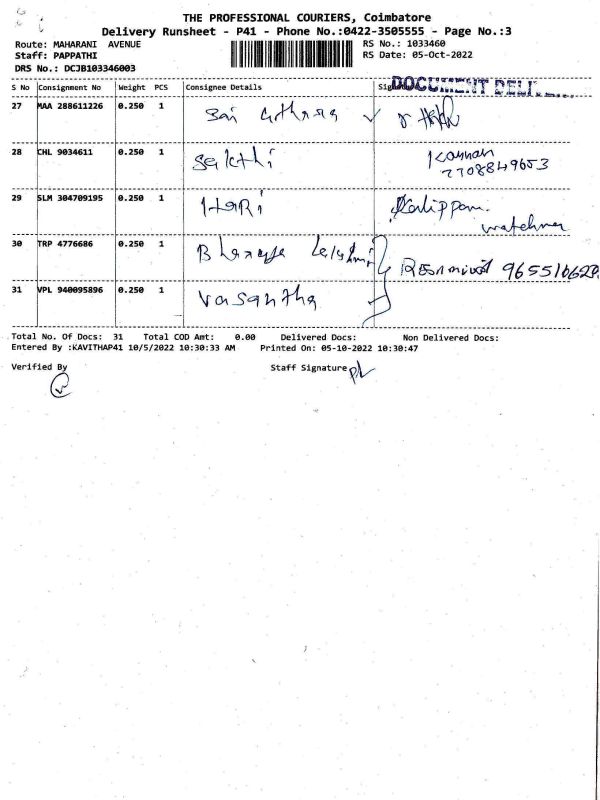 THE PROFESSIONAL COURIERS, Coimbatore
Delivery Runsheet - P41 - Phone No.:0422-3505555 - Page No.:3
Route: MAHARANI AVENUE RS No.: 1033460
Staff: PAPPATHI RS Date: 05-Oct-2022
DRS No.: DCJB103346003
S No Consignment No Weight PCS Consignee Details
DOCUMENT
27 MAA 288611226 0.250 1 Sai
28 CHL 9034611 0.250 1 Sakthi Kannan
7708849653
29 SLM 304709195 0.250 1 HARi Kalippan.
watchman
30 TRP 4776686 0.250 1
31 VPL 940095896 0.250 1 Vasantha
Total No. Of Docs: 31 Total COD Amt: 0.00 Delivered Docs: Non Delivered Docs:
Entered By :KAVITHAP41 10/5/2022 10:30:33 AM Printed On: 05-10-2022 10:30:47
Verified By Staff Signature